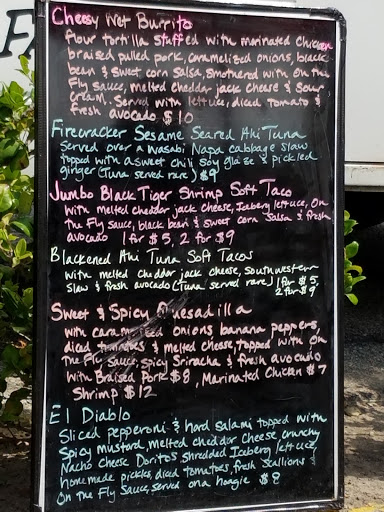 Cheesy Wet Burrito
flour tortilla stuffed with marinated chicken
braised pulled pork, caramelized onions, black
bean & sweet corn salsa, smothered with On the
Fly Sauce, melted cheddar jack cheese & sour
cream. Served with lettuce, diced tomato &
fresh avocado $10
Firecracker Sesame Seared Ahi Tuna
Served over a Wasabi Napa cabbage slaw
topped with a sweet chili soy glaze & pickled
ginger (Tuna served rare) $9
Jumbo Black Tiger Shrimp Soft Taco
with melted cheddar jack cheese, Iceberg lettuce, On
the Fly sauce, black bean & sweet corn salsa & fresh
avocado 1 for $5, 2 for $9
Blackened Ahi Tuna Soft Tacos
with melted cheddar jack cheese, Southwestern
slaw & fresh avocado (Tuna served rare) 1 for $5,
2 for $9
Sweet & Spicy Quesadilla
with caramelized onions banana peppers,
diced tomatoes & melted cheese, topped with On
The Fly Sauce, spicy Sriracha & fresh avocado
with Braised Pork $8, Marinated Chicken $7
Shrimp $12
El Diablo
Sliced pepperoni & hard salami topped with
Spicy mustard, melted cheddar cheese, crunchy
Nacho Cheese Doritos, shredded Iceberg lettuce,
homemade pickles, diced tomatoes, fresh scallions &
On the Fly Sauce, served on a hoagie $8